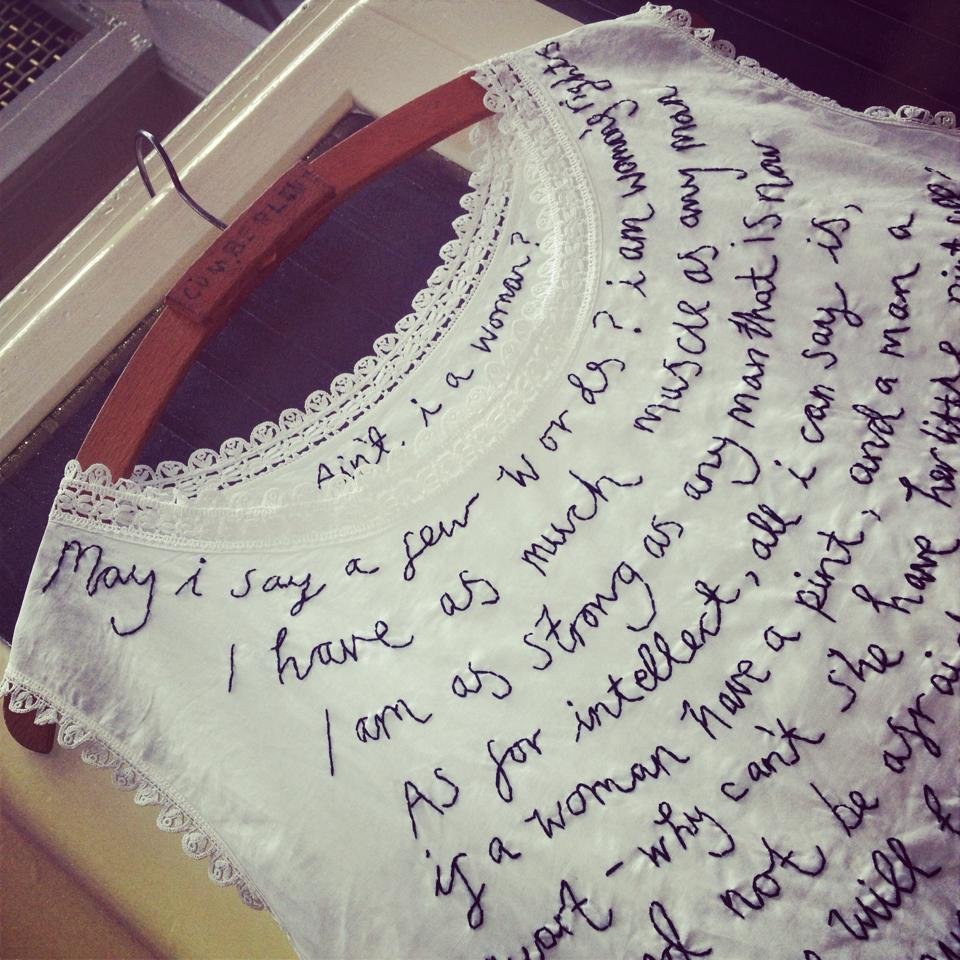 CUMBERLAND
Ain't i a woman?
May i say a few words? i am womans rights
I have as much muscle as any man
I am as strong as any man that is now
As for intellect, all i can say is,
if a woman have a pint, and a man a
quart - why can't she have her little pint
not be afraid
will